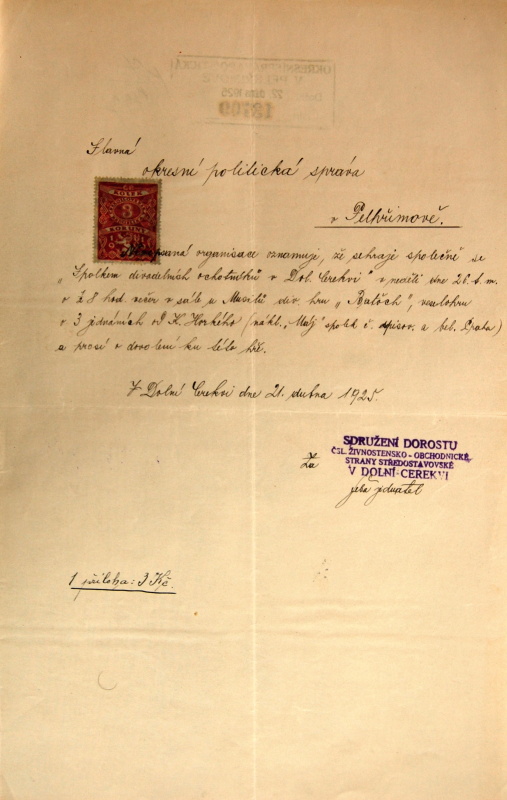 OKRESNÍ SPRÁVA POLITICKÁ
22. dubna 1925
18700
Slavná
okresní politická správa
v Pelhřimově.
ČS.
KOLEK
3
KORUNY
organisace oznamuje, že sehraje společně se
„Spolkem divadelních ochotníků v Dol. Cerekvi" v neděli dne 26. t. m.
v ½ 8 hod. večer v sále u div. hru „ ", veselohru
v 3 jednáních od K. Horkého (nákl. „Máj" spolek č. spisov. a bel. Praha)
a prosí o dovolení ku této hře.
V Dolní Cerekvi dne 21. dubna 1925.
SDRUŽENÍ DOROSTU
ČSL. ŽIVNOSTENSKO-OBCHODNICKÉ
STRANY STŘEDOSTAVOVSKÉ
V DOLNÍ-CEREKVI
Za
jednatel
1 příloha: 3 Kč.